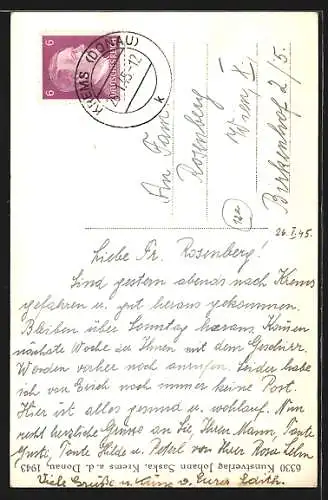 6
KREMS (DONAU)
k
An Fam.
Rosenberg
Wien X.
Birkenhof 2/5
26.I.45.
Liebe Fr. Rosenberg!
Sind gestern abends nach Krems
gefahren u. gut heraus gekommen.
Bleiben über Sonntag heraus, Kommen
nächste Woche zu Ihnen mit dem Geschirr.
Werden vorher noch anrufen. Leider habe
ich von Erich noch immer keine Post.
Hier ist alles gesund u. wohlauf. Nun
recht herzliche Grüsse an Sie, Ihren Mann, Tante
Gusti, Tante Hilde u. Peterl von Ihrer
Viele Grüße u. Eurer Edith
6330 Kunstverlag Johann Saska, Krems a. d. Donau, 1943